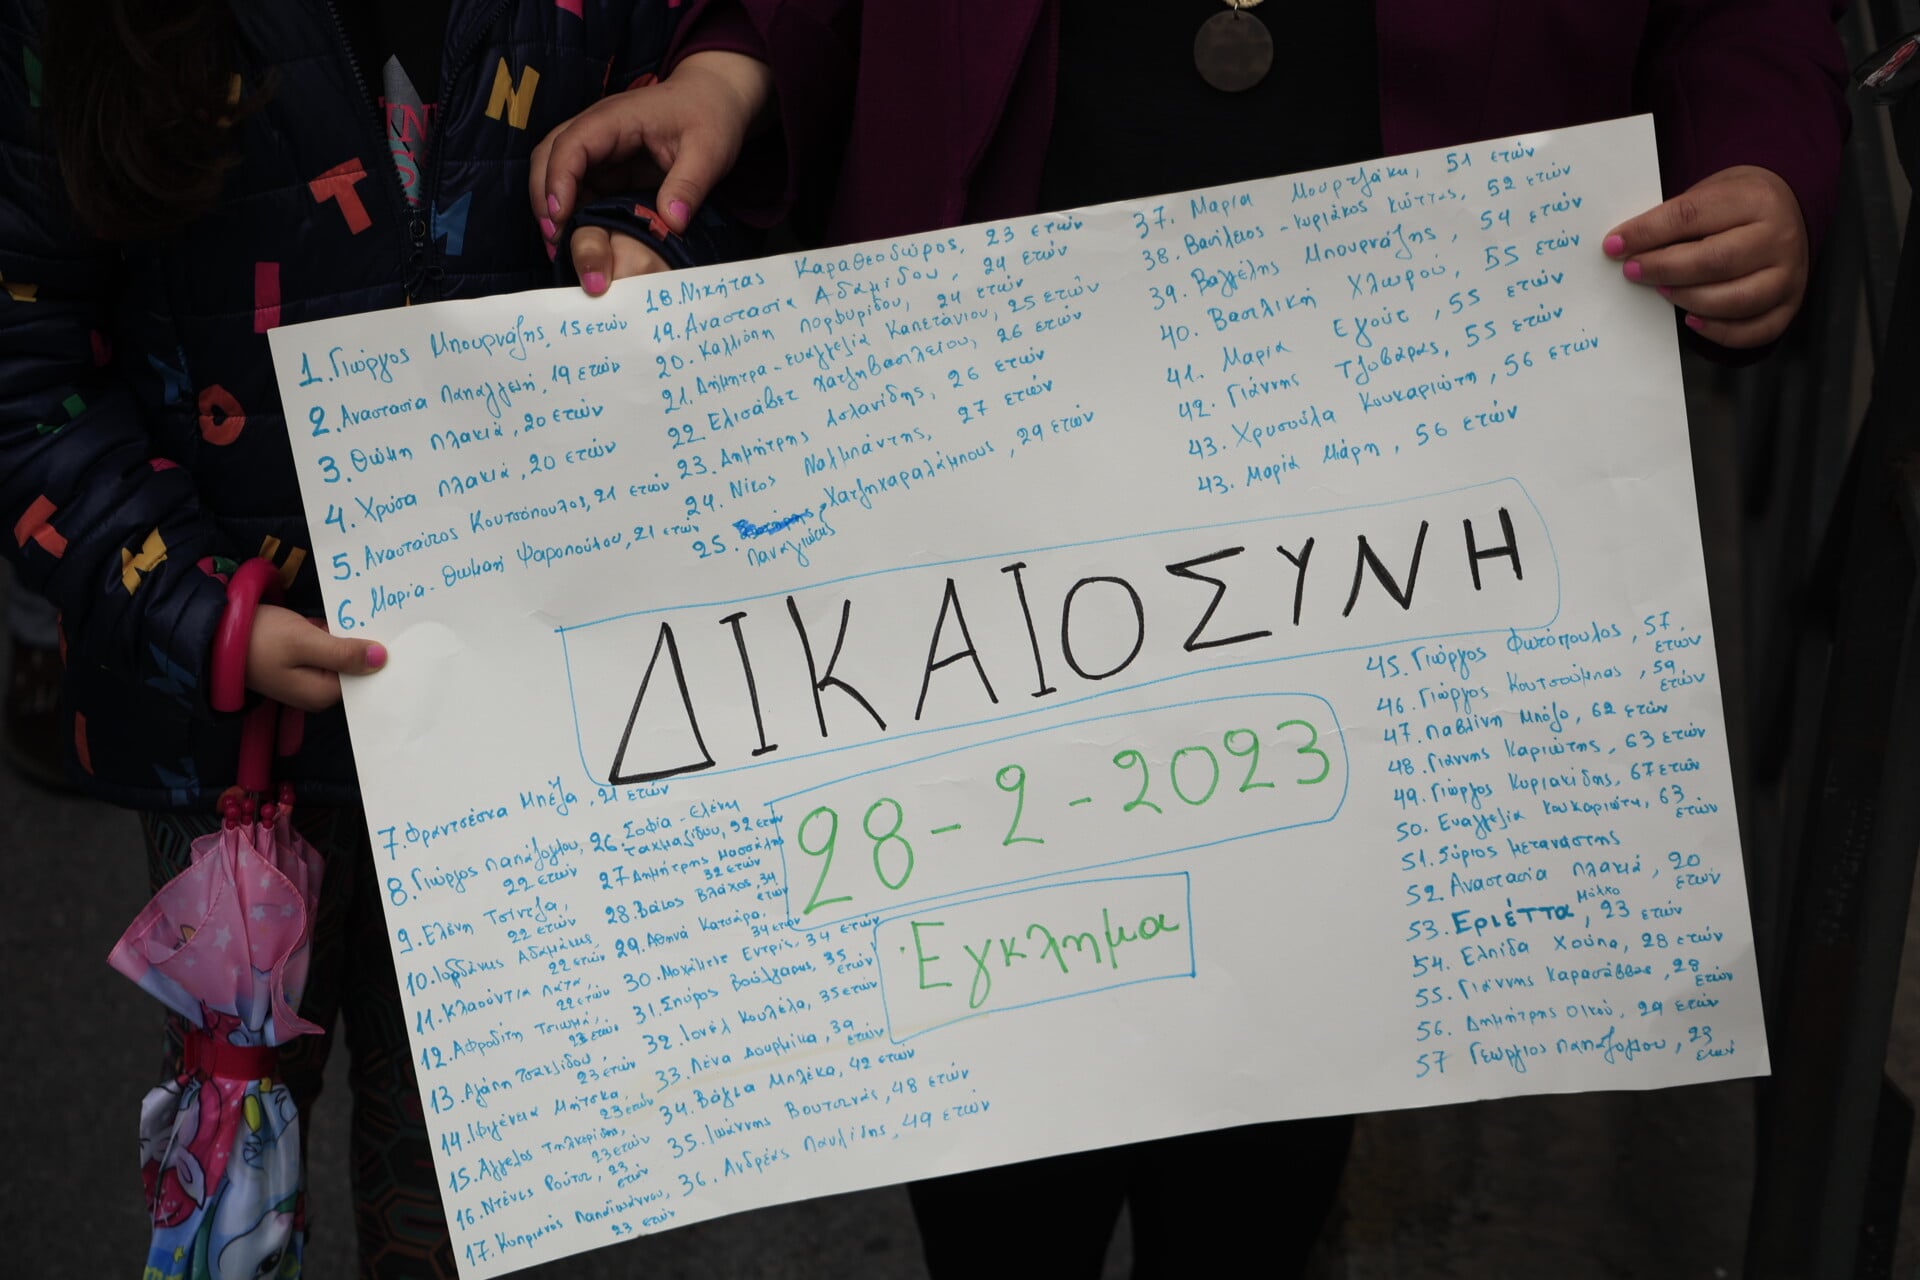 1. Γιώργος Μπουρνάζης, 15 ετών
2. Αναστασία Παπαγγελή, 19 ετών
3. Θώμη Πλακιά, 20 ετών
4. Χρύσα Πλακιά, 20 ετών
5. Αναστάσιος Κουτσόπουλος, 21 ετών
6. Μαρία-Θωμαή Ψαροπούλου, 21 ετών
18. Νικήτας Καραθεοδώρος, 23 ετών
19. Αναστασία Αδαμίδου, 24 ετών
20. Καλλιόπη Πορφυρίδου, 24 ετών
21. Δήμητρα-Ευαγγελία Καπετάνιου, 25 ετών
22. Ελισάβετ Χατζηβασιλείου, 26 ετών
23. Δημήτρης Ασλανίδης, 26 ετών
24. Νίκος Ναλμπάντης, 27 ετών
25. Χατζηχαραλάμπους, 29 ετών
Παναγιώτης
37. Μαρία Μουρτζάκη, 51 ετών
38. Βασίλειος-Κυριάκος Κώττας, 52 ετών
39. Βαγγέλης Μπουρνάζης, 54 ετών
40. Βασιλική Χλωρού, 55 ετών
41. Μαρία Εγούτ, 55 ετών
42. Γιάννης Τζοβάρας, 55 ετών
43. Χρυσούλα Κουκαριώτη, 56 ετών
43. Μαρία Μιάρη, 56 ετών
ΔΙΚΑΙΟΣΥΝΗ
28-2-2023
Έγκλημα
7. Φραντσέσκα Μπέζα, 21 ετών
8. Γιώργος Παπάζογλου,
22 ετών
9. Ελένη Τσίντζα,
22 ετών
10. Ιορδάνης Αδαμάκης,
22 ετών
11. Κλαούντια Λάτα,
22 ετών
12. Αφροδίτη Τσιωμά,
23 ετών
13. Αγάπη Τσακλίδου,
23 ετών
14. Ιφιγένεια Μήτσκα,
23 ετών
15. Άγγελος Τηλκερίδης,
23 ετών
16. Ντένις Ρούτσι, 23
ετών
17. Κυπριανός Παπαϊωάννου,
23 ετών
26. Σοφία-Ελένη
Ταχμαζίδου, 32 ετών
27 Δημήτρης Μασσάλης
32 ετών
28. Βάιος Βλάχος, 34
ετών
29. Αθηνά Κατσάρα,
34 ετών
30. Μοχάμεντ Εντρίς, 34 ετών
31. Σπύρος Βούλγαρης, 35
ετών
32. Ιονέλ Κουλέλα, 35 ετών
33. Λένα Δουρμίκα, 39
ετών
34. Βάγια Μπλέκα, 42 ετών
35. Ιωάννης Βουτσινάς, 48 ετών
36. Ανδρέας Παυλίδης, 49 ετών
45. Γιώργος Φωτόπουλος, 57
ετών
46. Γιώργος Κουτσούμπας, 59
ετών
47. Παβλίνη Μπόζο, 62 ετών
48. Γιάννης Καριώτης, 63 ετών
49. Γιώργος Κυριακίδης, 67 ετών
50. Ευαγγελία Κουκαριώτη, 63
ετών
51. Σύριος μετανάστης
52. Αναστασία Πλακιά, 20
ετών
53. Εριέττα Μόλχο, 23 ετών
54. Ελπίδα Χούπα, 28 ετών
55. Γιάννης Καρασάββας, 28
ετών
56. Δημήτρης Οικού, 29 ετών
57 Γεώργιος Παπάζογλου, 23
ετών